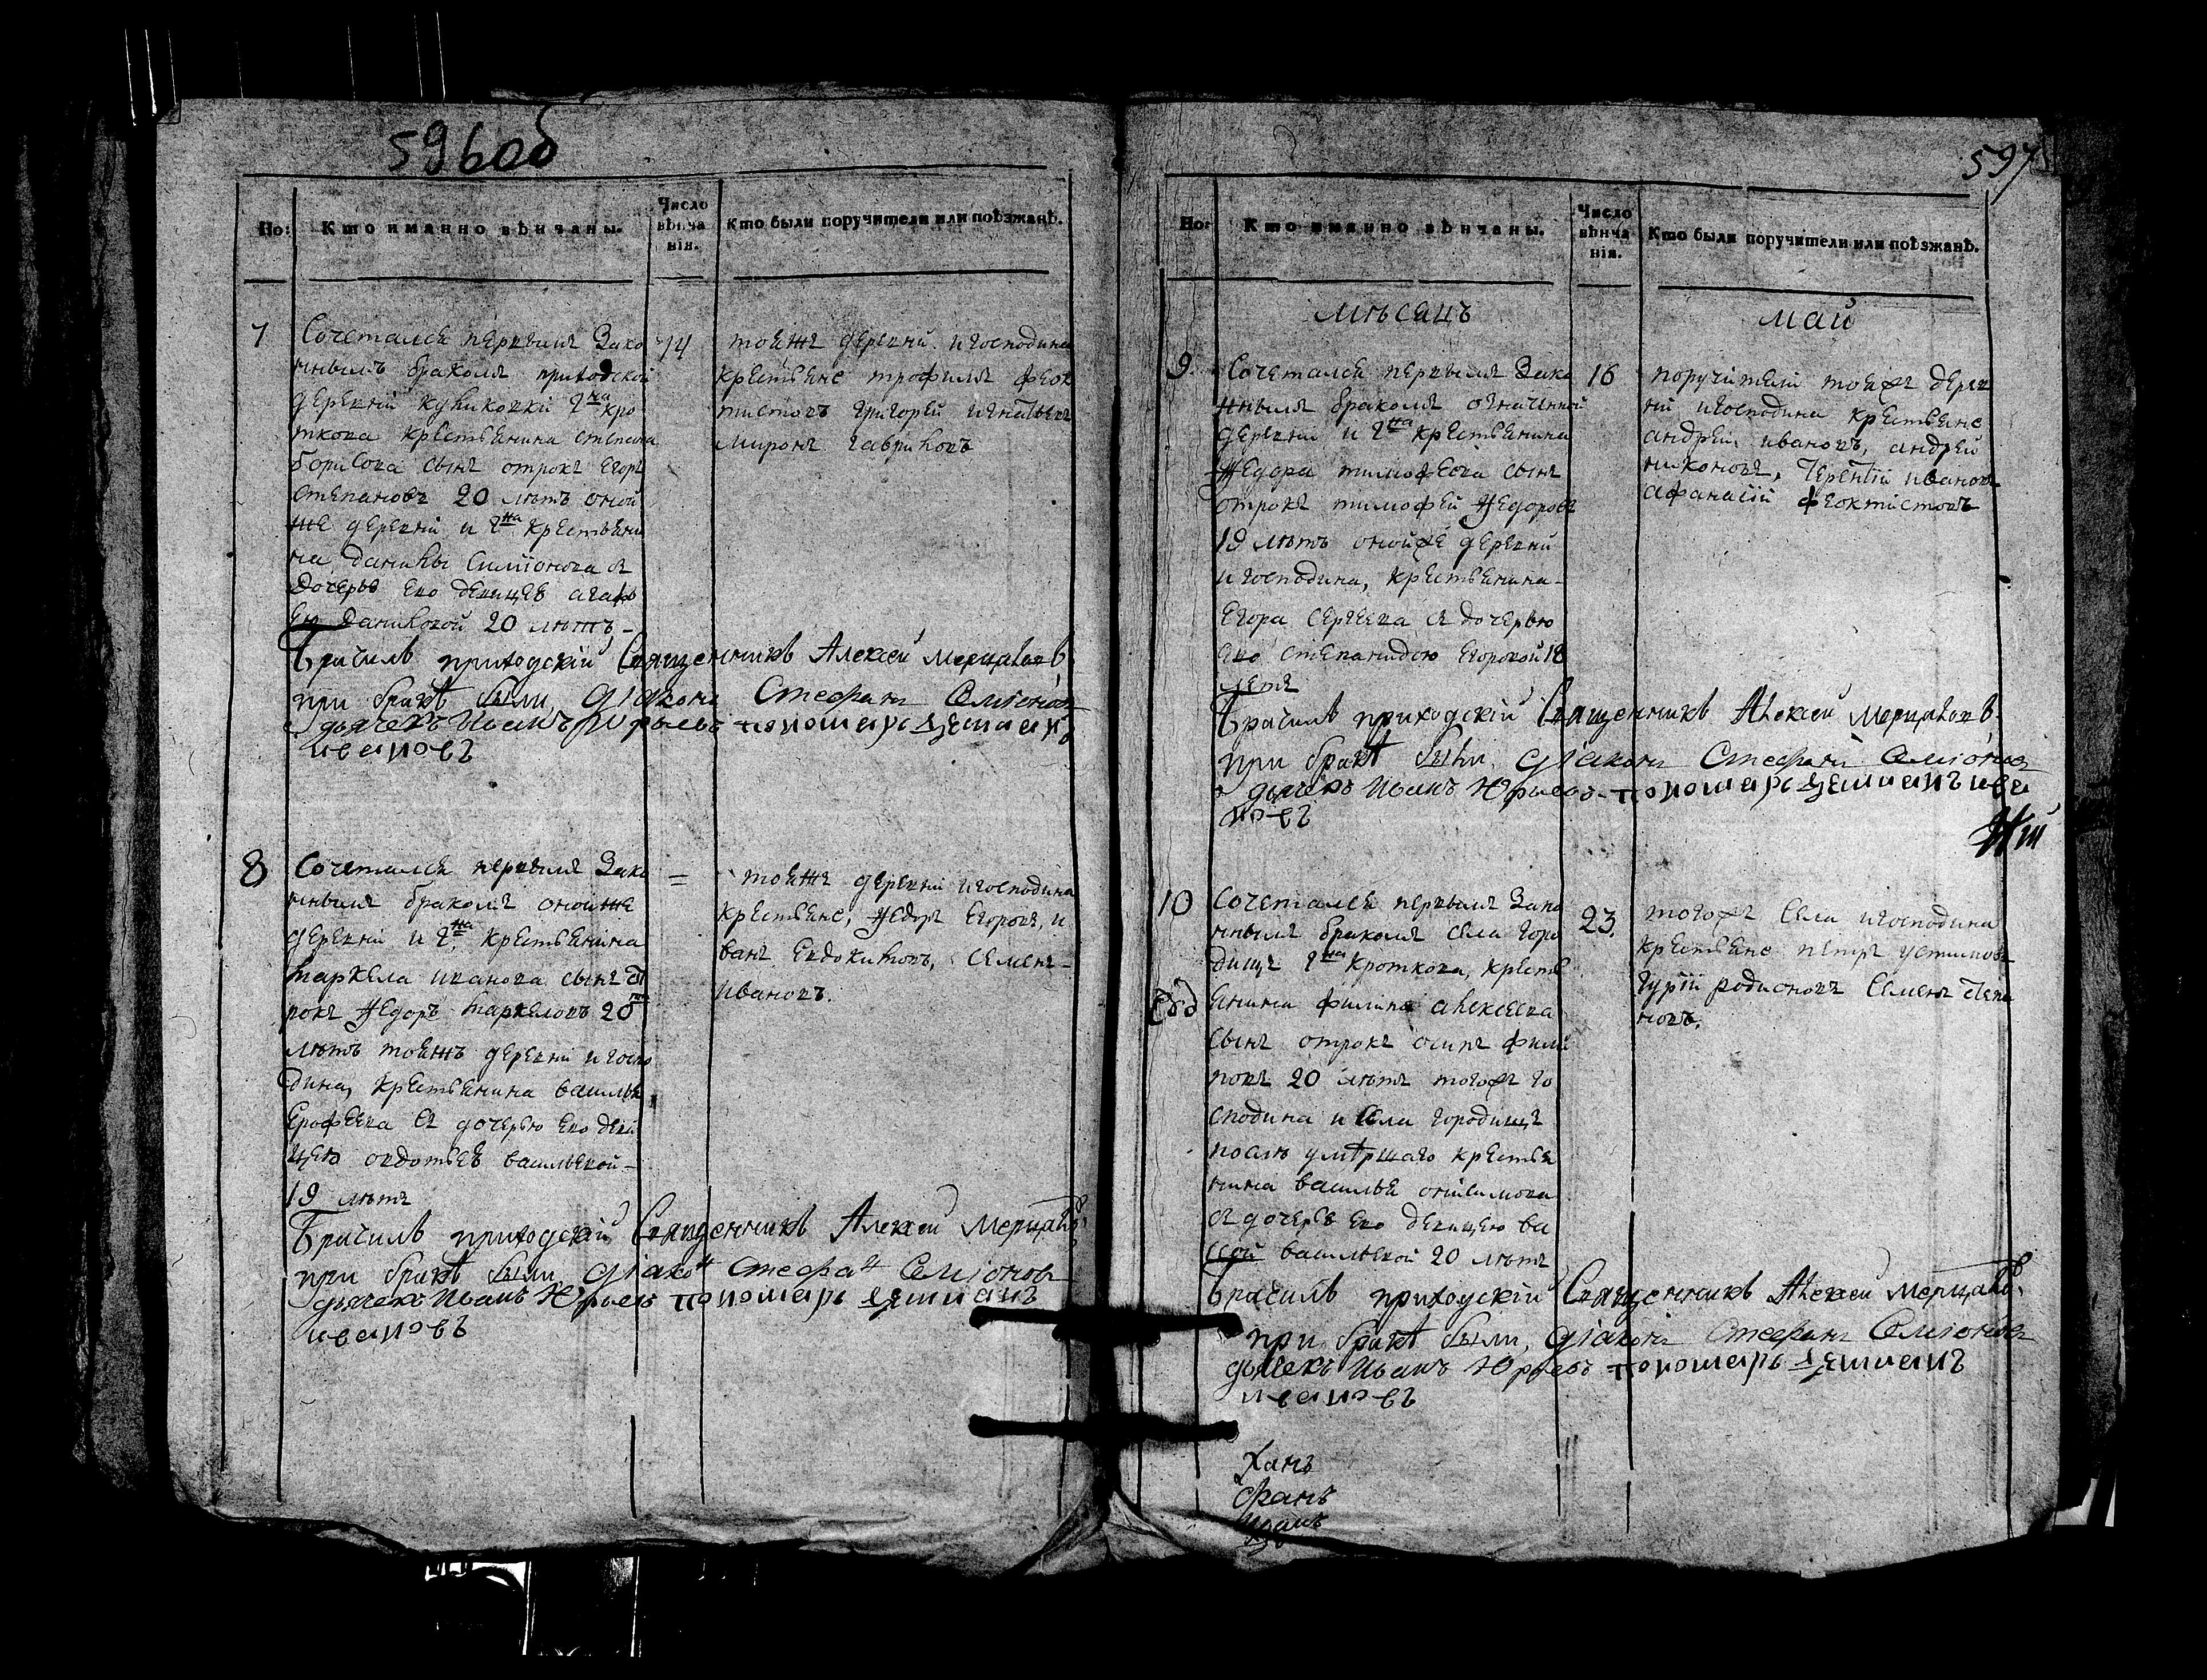 596об
Но:
Кто иманно вѣнчаны.
Число
вѣнча
нія.
Кто были поручители или поѣзжанѣ.
7
Сочетался первымъ Зако
ннымъ бракомъ приходской
деревни куликовки Гна Кро
ткова крестьянина степана
борисова сынъ отрокъ Егоръ
степановъ 20 лѣтъ оной
же деревни и Гна крестьяни
на данилы Симионова съ
дочерью Ево девицею агаф
ею даниловой 20 лѣтъ
14
тоейже деревни и господина
крестьяне трофимъ феок
тистовъ григорей игнатьевъ
миронъ гавриловъ
Брачилъ приходскій Священникъ Алексей Мерцаловъ
при бракѣ были, діаконъ Стефанъ Симіоновъ
дьячекъ Иванъ Юрьевъ пономарь Демианъ
ивановъ
8
Сочетался первымъ Зако
ннымъ бракомъ онойже
деревни и Гна крестьянина
Маркела иванова сынъ от
рокъ Федоръ Маркеловъ 20
лѣтъ тоейжъ деревни и госпо
дина, крестьянина василья
Ерофеева съ дочерью Ево деви
цею овдотьею васильевой
19 лѣтъ
=
тоейже деревни и господина
крестьяне, Федоръ Егоровъ, и
ванъ Евдокимовъ, Семенъ
ивановъ.
Брачилъ приходскій Священникъ Алексей Мерцаловъ
при бракѣ были, діаконъ Стефанъ Симіоновъ
дьячекъ Иванъ Юрьевъ пономарь Демианъ
ивановъ
597
Но:
Кто иманно вѣнчаны.
Число
вѣнча
нія.
Кто были поручители или поѣзжанѣ.
мѣсяцъ
май
9
Сочетался первымъ Зако
ннымъ бракомъ означенной
деревни и Гна крестьянина
Федора тимофеева сынъ
отрокъ тимофей Федоровъ
19 лѣтъ онойже деревни
и господина, крестьянина
Егора Сергеева съ дочерью
Ево степанидою Егоровой 18
летъ
16
поручители тоейже дерев
ни и господина крестьяне
андрей ивановъ, андрей
никоновъ, терентій ивановъ
афанасій феоктистовъ
Брачилъ приходскій Священникъ Алексей Мерцаловъ
при бракѣ были, діаконъ Стефанъ Симіоновъ
дьячекъ Иванъ Юрьевъ пономарь Демианъ ива
новъ
10
Сочетался первымъ Зако
ннымъ бракомъ села горо
дищъ Гна Кроткова, кресть
янина филипа алексеева
сынъ отрокъ осипъ фили
повъ 20 лѣтъ тогожъ го
сподина и села городищъ
послѣ умершаго крестья
нина василья онисимова
съ дочерью Ево девицею ва
ссой васильевой 20 лѣтъ
23.
тогожъ села и господина
крестьяне петръ устиновъ
гурій родионовъ Семенъ степа
новъ.
Брачилъ приходскій Священникъ Алексей Мерцаловъ
при бракѣ были, діаконъ Стефанъ Симіоновъ
дьячекъ Иванъ Юрьевъ пономарь Демианъ
ивановъ